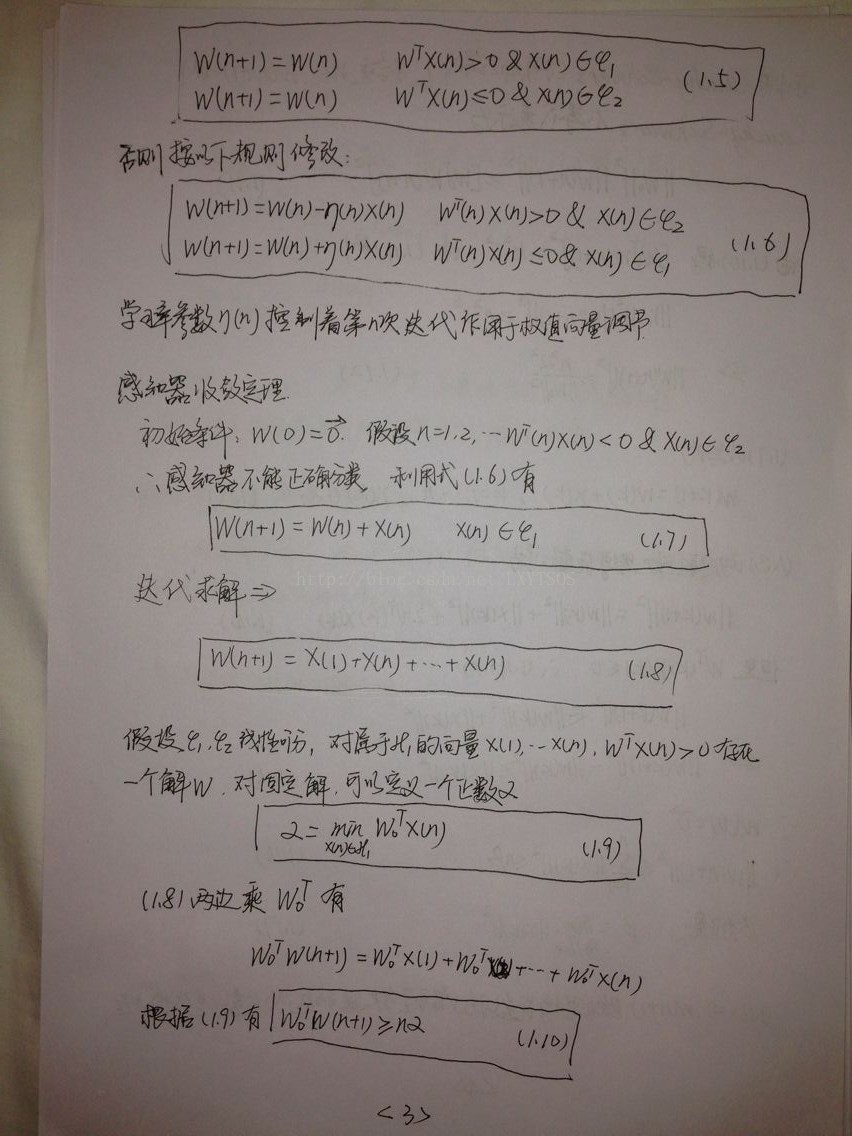 W(n+1)=W(n) WᵀX(n)>0 & X(n)∈φ₁
W(n+1)=W(n) WᵀX(n)≤0 & X(n)∈φ₂ (1.5)
否则按以下规则修改:
W(n+1)=W(n)-η(n)X(n) Wᵀ(n)X(n)>0 & X(n)∈φ₂
W(n+1)=W(n)+η(n)X(n) Wᵀ(n)X(n)≤0 & X(n)∈φ₁ (1.6)
学习率参数η(n)控制着第n次迭代作用于权值向量调节
感知器收敛定理
初始条件: W(0)=0⃗. 假设n=1,2,…Wᵀ(n)X(n)<0 & X(n)∈φ₂
∴感知器不能正确分类 利用式(1.6)有
W(n+1)=W(n)+X(n) X(n)∈φ₁ (1.7)
迭代求解⇒
W(n+1)=X(1)+X(n)+…+X(n) (1.8)
假设φ₁,φ₂线性可分, 对属于H₁的向量X(1),…X(n), WᵀX(n)>0存在
一个解W. 对固定解, 可以定义一个正数α
α=min WₒᵀX(n)
X(n)∈H₁ (1.9)
(1.8)两边乘Wₒᵀ有
WₒᵀW(n+1)=WₒᵀX(1)+Wₒᵀ +…+WₒᵀX(n)
根据(1.9)有 WₒᵀW(n+1)≥nα (1.10)
<3>